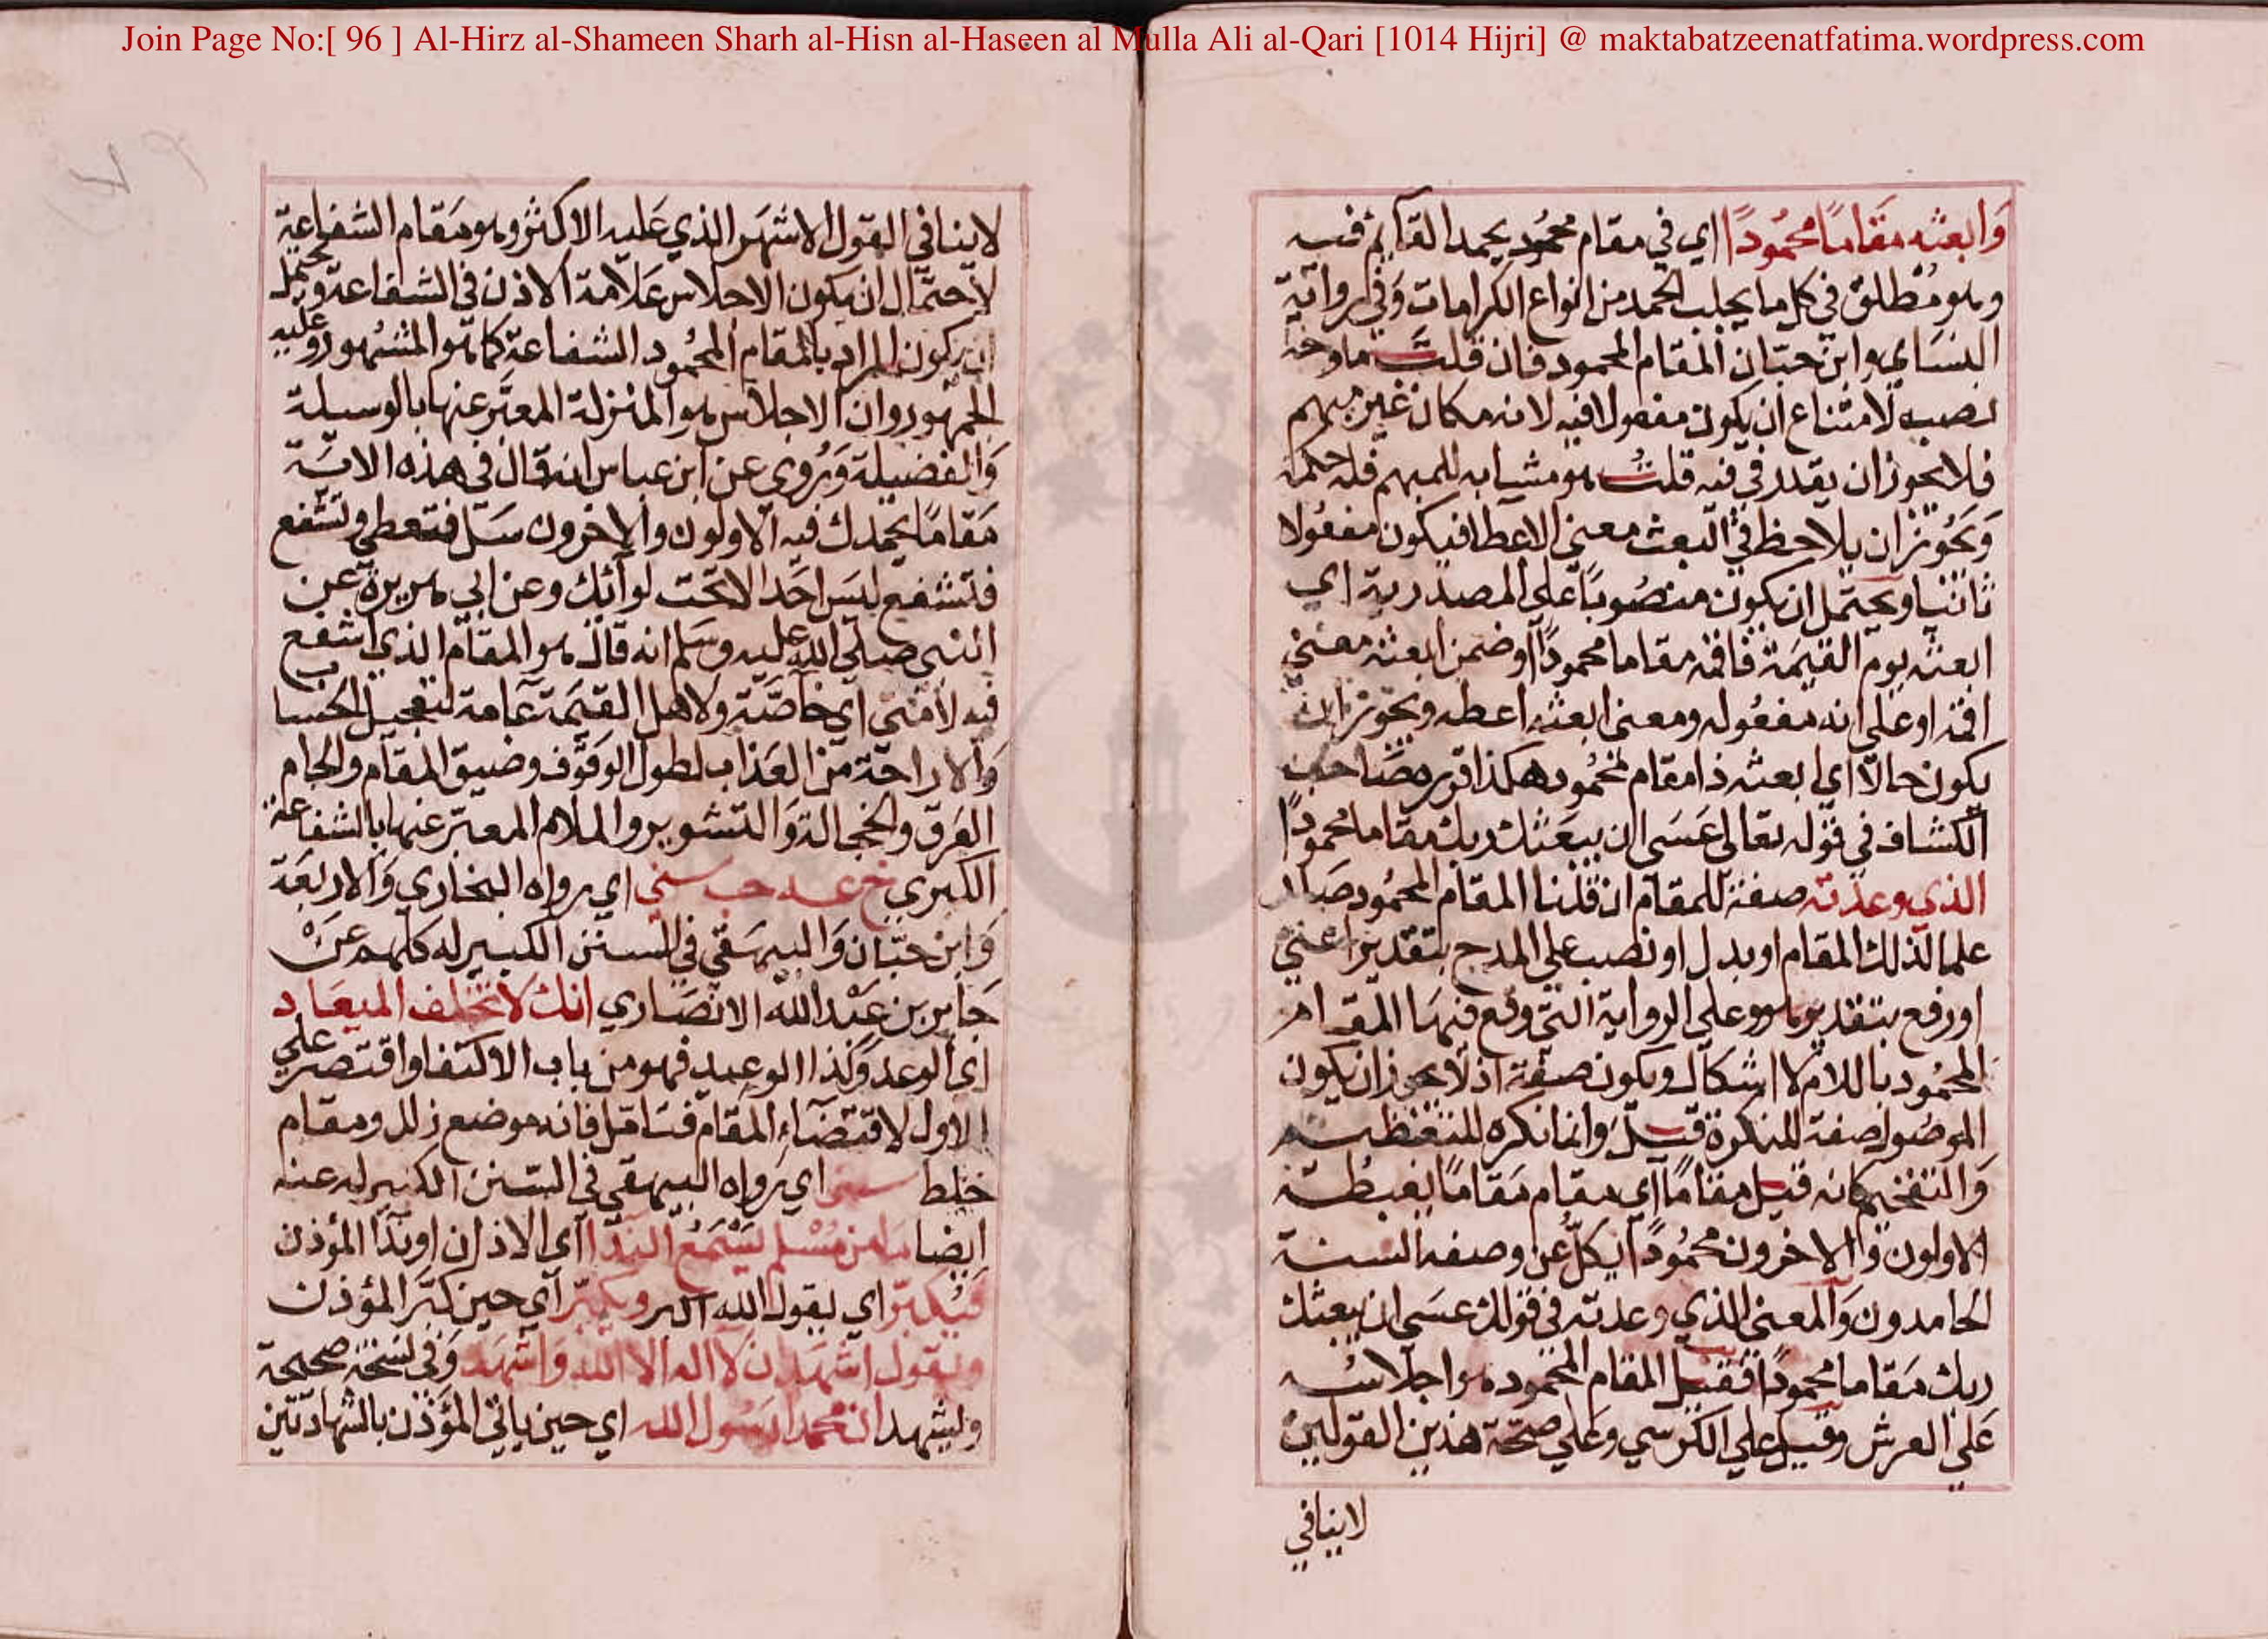 Join Page No:[ 96 ] Al-Hirz al-Shameen Sharh al-Hisn al-Haseen al Mulla Ali al-Qari [1014 Hijri] @ maktabatzeenatfatima.wordpress.com
وَابعثه مقَامًا محمُودًا اي في مقام محمُود يحمد القآيم فيه
وهو مُطلق في كل ما يجلب الحمد من انواع الكرامات وَفي رواية
النسَاي وابن حبّان المقام المحمود فان قلتَ ما وجه
نصبه لامتناع ان يكون مفعولا فيه لانه مكان غير مبهم
فلا يجوز ان يقدر في فيه قلتُ هو مشابه للمبهم فله حكمه
وَيجُوز ان يلاحظ في البعث معنى الاعطا فيكون مفعُولا
ثانيا ويحتمل ان يكون منصُوبًا على المصدرية اي
ابعثه يوم القيمَة فاقمه مقاما محمودًا او ضمن ابعثه معنى
اقمه او على انه مفعُوله ومعنى ابعثه اعطه ويجوز ان
يكون حالا اي ابعثه ذا مقام محمُود هكذا قرره صَاحب
الكشاف في قوله تعالى عَسَى ان يبعَثك ربك مقاما محمودًا
الذي وعدته صفة للمقام ان قلنا المقام المحمُود صَار
علما لذلك المقام او بدل او نصب على المدح بتقدير اعني
او رفع بتقدير هو وعلى الرواية التي وقع فيهَا المقام
المحمُود باللام لا اشكال ويكون صفة اذ لا يجوز ان يكون
الموصُول صفة للنكرة قيل وانما نكره للتعظيم
وَالتفخيم كانه قيل مقامًا اي مقام مَقامًا يغبطه
الاولون وَالاخرون محمُودًا يكلّ عن وصفه السنة
الحامدون وَالمعنى الذي وعدته في قولك عسَى ان يبعثك
ربك مَقاما محمودًا فقيل المقام المحمود هو اجلاسُه
عَلى العرش وقيل على الكرسي وعَلى صحّة هذين القولين
لا ينافي
لا ينافي القول الاشهَر الذي عَليه الاكثر وهو مَقام الشفاعة
لاحتمال ان يكون الاجلاس عَلامة الاذن في الشفاعة ويحتمل
ان يكون المراد بالمقام المحمُود الشفاعة كما هو المشهور وعليه
الجمهور وان الاجلاس هو المنزلة المعبَّر عنها بالوسيلة
وَالفضيلة وَرُوي عن ابن عباس انه قال في هذه الاية
مَقامًا يحمدك فيه الاولون والاخرون سَل فتعطى وتشفع
فتشفع ليسَ احَد الا تحت لوآئك وعن ابي هريرة عن
النبي صلى الله عليه وسَلم انه قال هو المقام الذي اشفع
فيه لامتي اي خاصّة ولاهل القيمَة عَامة لتعجيل الحساب
وَالاراحة من العَذاب لطول الوقوف وضيق المقام والجام
العَرق والخجالة وَالتشوير والملام المعبّر عنها بالشفاعة
الكبرى خ عه حب سني اي رواه البخاري وَالاربعَة
وَابن حبّان وَالبيهقي في السنن الكبير له كلهم عنْ
جَابر بن عَبْد الله الانصَاري انك لا تخلف الميعَاد
اي الوعد وَكذا الوعيد فهو من باب الاكتفا واقتصر على
الاول لاقتضآء المقام فتَامّل فانه موضع زلل ومقام
خلط سني اي رواه البيهقي في السنن الكبير له عنه
ايضا مَا من مُسْلم يسْمَع الندآ اي الاذان او ندآ المؤذن
فيُكبّر اي يقول الله اكبر ويكبّر اي حين كبّر المؤذن
وَيقول اشهَد ان لا اله الا الله وَاشهَد وَفي نسخة صحيحة
وليشهد ان محمدا رسُول الله اي حين ياتي المؤَذن بالشهادتين